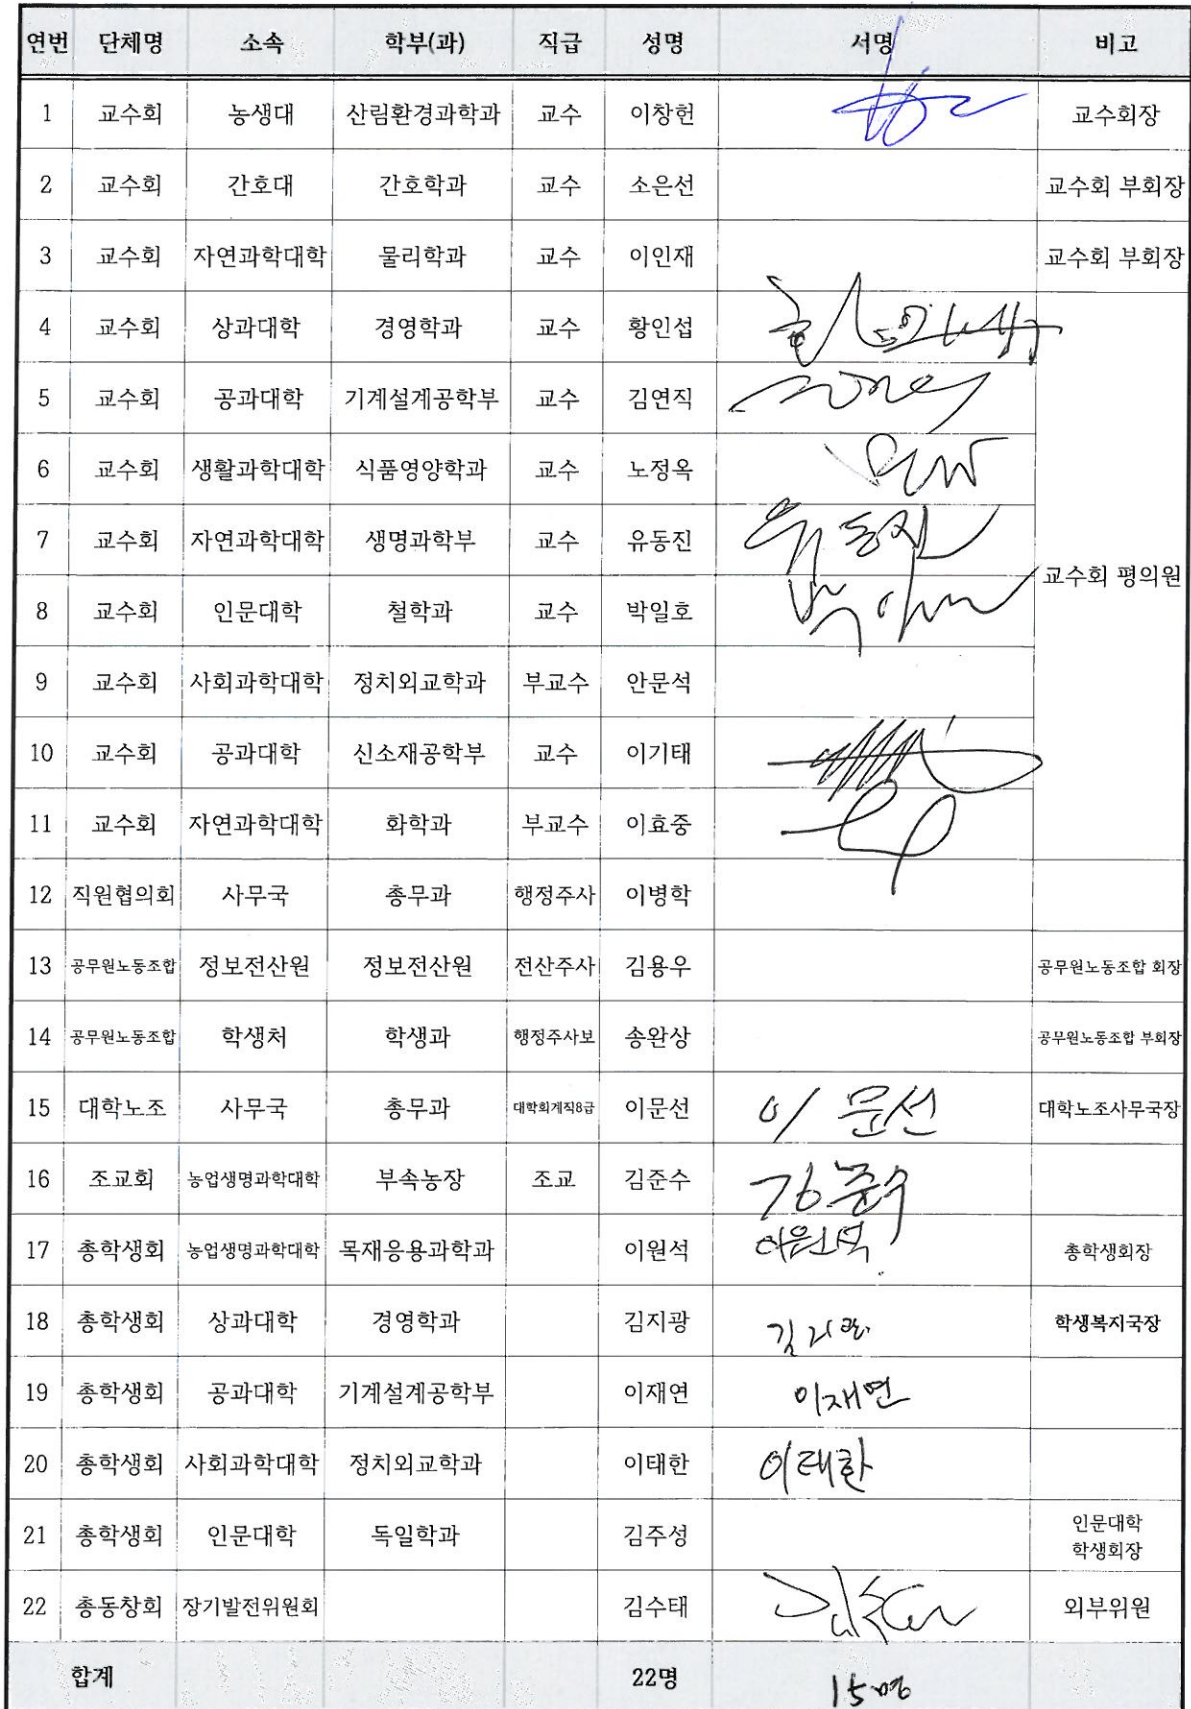 연번 단체명 소속 학부(과) 직급 성명 서명 비고
1 교수회 농생대 산림환경과학과 교수 이창헌 교수회장
2 교수회 간호대 간호학과 교수 소은선 교수회 부회장
3 교수회 자연과학대학 물리학과 교수 이인재 교수회 부회장
4 교수회 상과대학 경영학과 교수 황인섭
5 교수회 공과대학 기계설계공학부 교수 김연직
6 교수회 생활과학대학 식품영양학과 교수 노정옥
7 교수회 자연과학대학 생명과학부 교수 유동진 유동진
교수회 평의원
8 교수회 인문대학 철학과 교수 박일호
9 교수회 사회과학대학 정치외교학과 부교수 안문석
10 교수회 공과대학 신소재공학부 교수 이기태
11 교수회 자연과학대학 화학과 부교수 이효중
12 직원협의회 사무국 총무과 행정주사 이병학
13 공무원노동조합 정보전산원 정보전산원 전산주사 김용우 공무원노동조합 회장
14 공무원노동조합 학생처 학생과 행정주사보 송완상 공무원노동조합 부회장
15 대학노조 사무국 총무과 대학회계직8급 이문선 이문선 대학노조사무국장
16 조교회 농업생명과학대학 부속농장 조교 김준수 김준수
17 총학생회 농업생명과학대학 목재응용과학과 이원석 이원석 총학생회장
18 총학생회 상과대학 경영학과 김지광 김지광 학생복지국장
19 총학생회 공과대학 기계설계공학부 이재연 이재연
20 총학생회 사회과학대학 정치외교학과 이태한 이태한
21 총학생회 인문대학 독일학과 김주성 인문대학
학생회장
22 총동창회 장기발전위원회 김수태 외부위원
합계 22명 15명